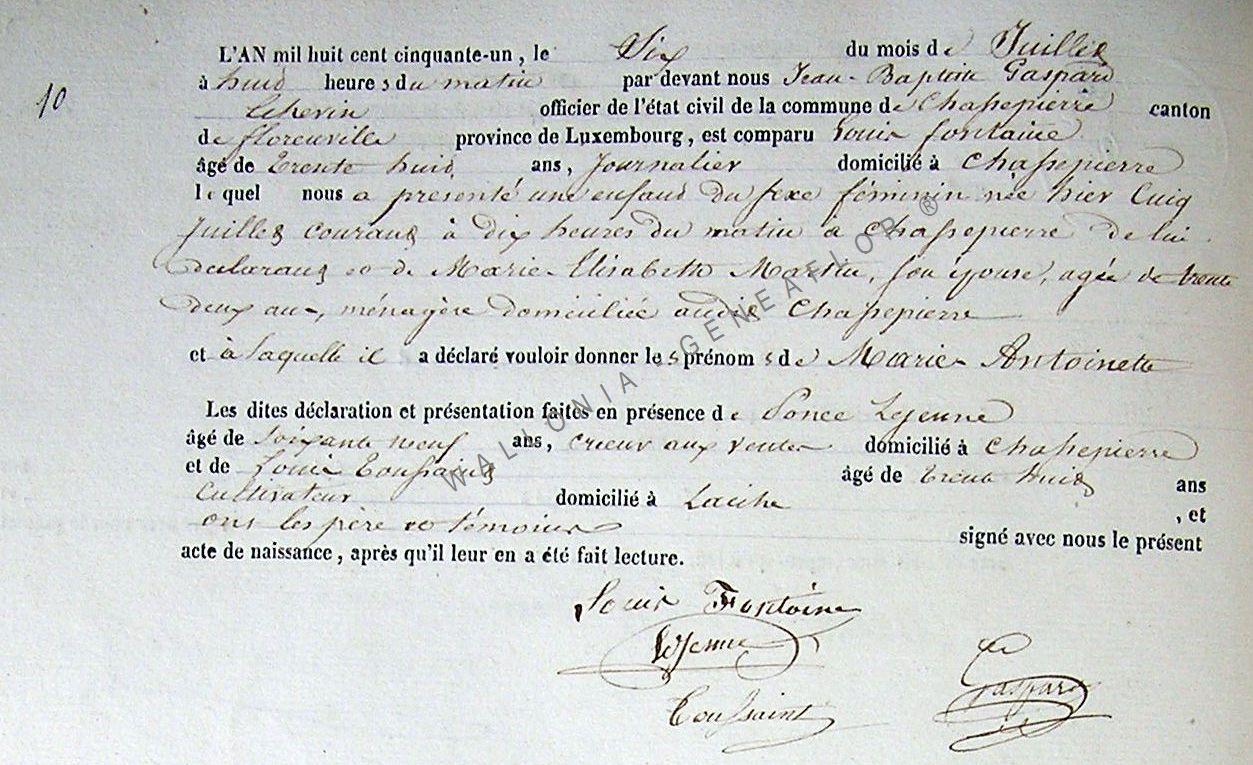 10
L'AN mil huit cent cinquante-un, le Six du mois de Juillet
à huit heures du matin par devant nous Jean-Baptiste Gaspard
Echevin officier de l'état civil de la commune de Chassepierre canton
de florenville province de Luxembourg, est comparu Louis fontaine
âgé de trente huit ans, Journalier domicilié à Chassepierre
lequel nous a presenté une enfant du sexe féminin née hier Cinq
Juillet courant à dix heures du matin à Chassepierre de lui
declarant et de Marie-Elisabeth Martin, son épouse, agée de trente
deux ans, ménagère domiciliée audit Chassepierre
et à laquelle il a déclaré vouloir donner les prénoms de Marie-Antoinette
Les dites déclaration et présentation faites en présence de Ponce Lejeune
âgé de soixante neuf ans, crieur aux ventes domicilié à Chassepierre
et de Louis Toussaint âgé de trente huit ans
cultivateur domicilié à Laiche, et
ont les père et témoins signé avec nous le présent
acte de naissance, après qu'il leur en a été fait lecture.
Louis Fontaine
Lejeune
Toussaint
Gaspard
WALLONIA - GENEAFLOR ®